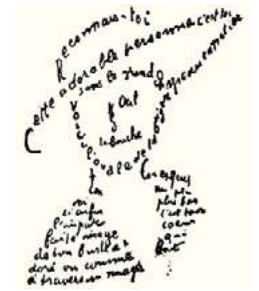 Reconnais-toi
Cette adorable personne c'est toi
sous le grand chapeau canotier
Oeil
la bouche
Voici l'ovale de ta figure
Ton cou exquis
ci enfin
l'impar
faite image
de ton buste a
doré vu comme
à travers un nuage
un peu
plus bas
c'est ton
coeur
qui
bat